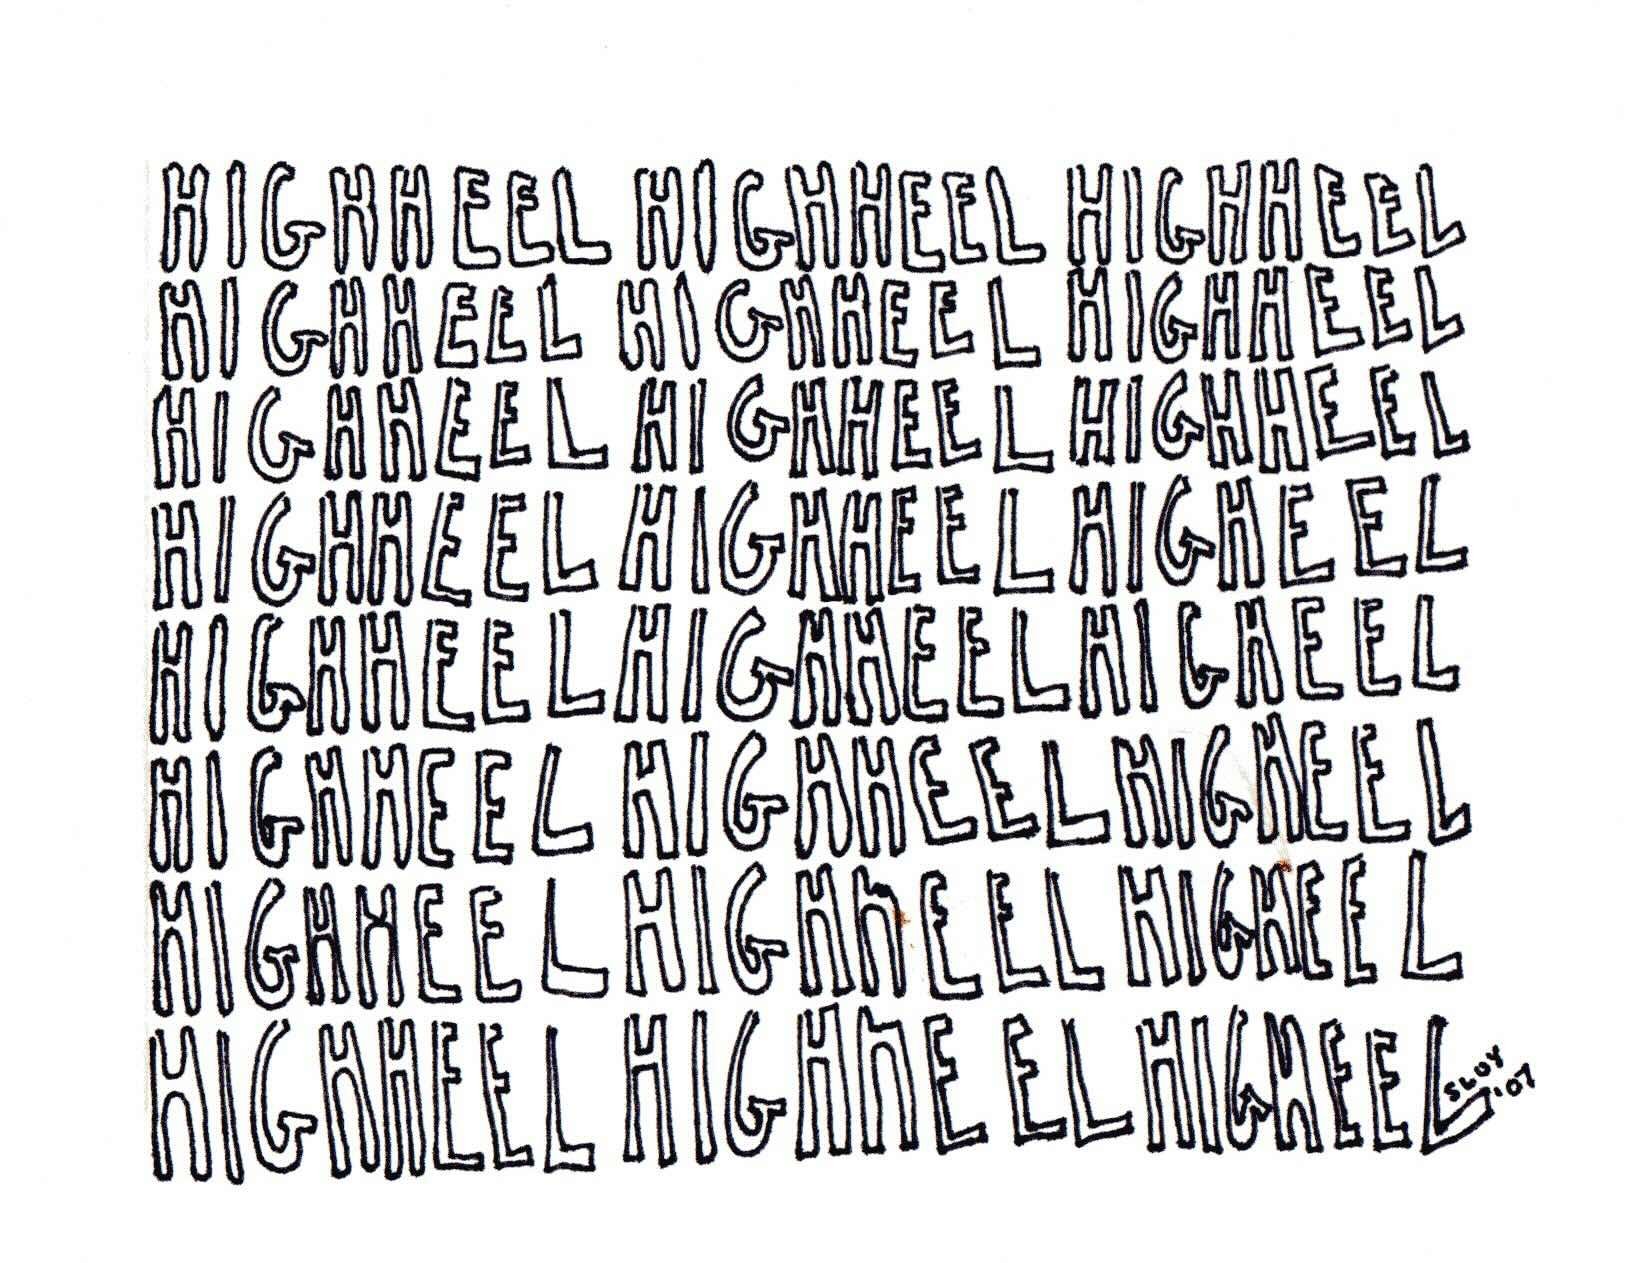 HIGHHEEL HIGHHEEL HIGHHEEL
HIGHHEEL HIGHHEEL HIGHHEEL
HIGHHEEL HIGHHEEL HIGHHEEL
HIGHHEEL HIGHHEEL HIGHEEL
HIGHHEEL HIGHHEEL HIGHEEL
HIGHHEEL HIGHHEEL HIGHEEL
HIGHHEEL HIGHhEEL HIGHEEL
HIGHHEEL HIGHhEEL HIGHEEL
SLOY
'07